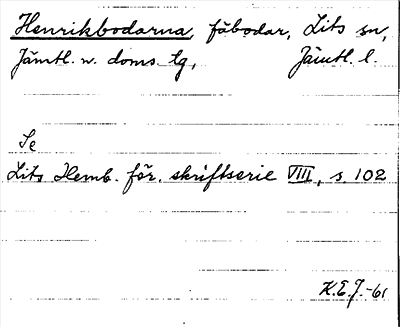 Henrikbodarna, fäbodar, Lits sn,
Jämtl. n. doms. tg, Jämtl. l.
Se
Lits Hemb. för. skriftserie VIII, s. 102
K.E.J.-61